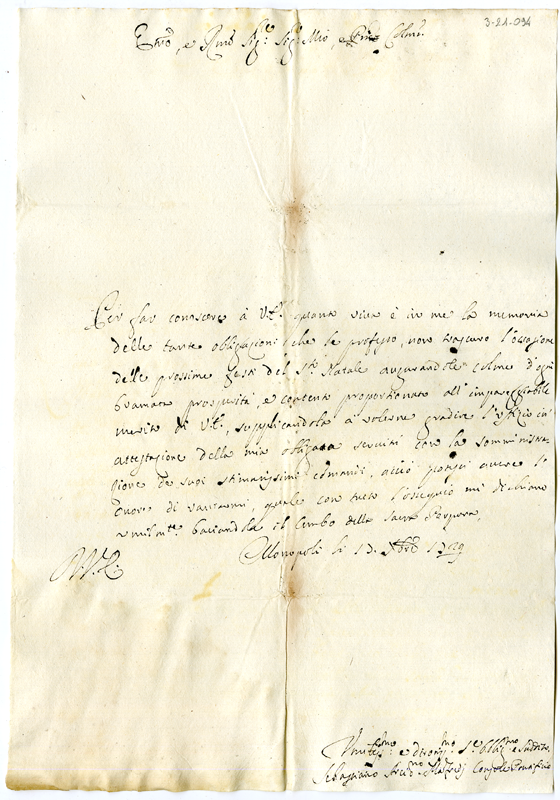 3-21-094
Em͞o, e Rm͞o Sig.r Sig.r Mio, e Prn͞e Colm͞o
Per far conoscere à V.E. quanto viva è in me la memoria
delle tante obligazioni che le professo, non trascuro l'occasione
delle prossime feste del S.to Natale augurandole colme d'ogni
bramata prosperità, e contento proportionato all'impareggiabile
merito di V.E., supplicandola à volerne gradire l'offizio in
attestazione della mia obligata servitù con la somministra-
zione de suoi stimatissimi comandi, acciò possa avere l'o-
nore di vantarmi, quale con tutto l'ossequio mi dichiaro
umilm.te baciandole il lembo della Sacra Porpora,
Monopoli li 13. Xbre 1729
V.E.
Umiliss.mo e devotiss.mo Se.re obblig.mo e suddito
Sebastiano Console Pontificio